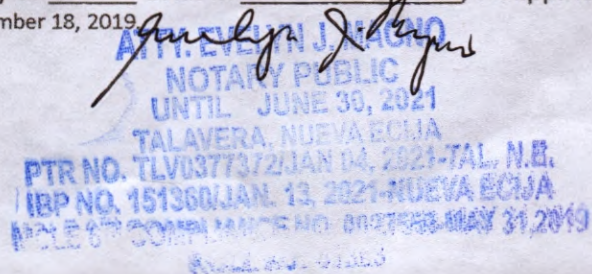 mber 18, 2019
ATTY. EVELYN J. MAGNO
NOTARY PUBLIC
UNTIL JUNE 30, 2021
TALAVERA, NUEVA ECIJA
PTR NO. TLV0377372/JAN 04, 2021-TAL, N.E.
IBP NO. 151360/JAN. 13, 2021-NUEVA ECIJA
COMPLIANCE NO. MAY 31,2019